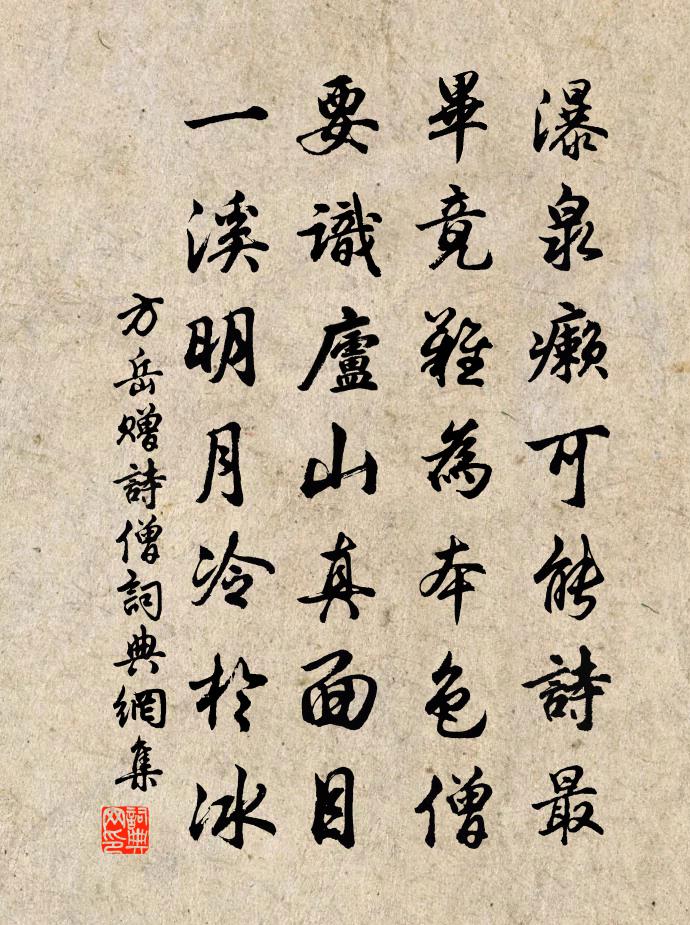 瀑泉癩可能詩最
畢竟難為本色僧
要識廬山真面目
一溪明月冷於冰
方岳贈詩僧詞典網集
詞典网印